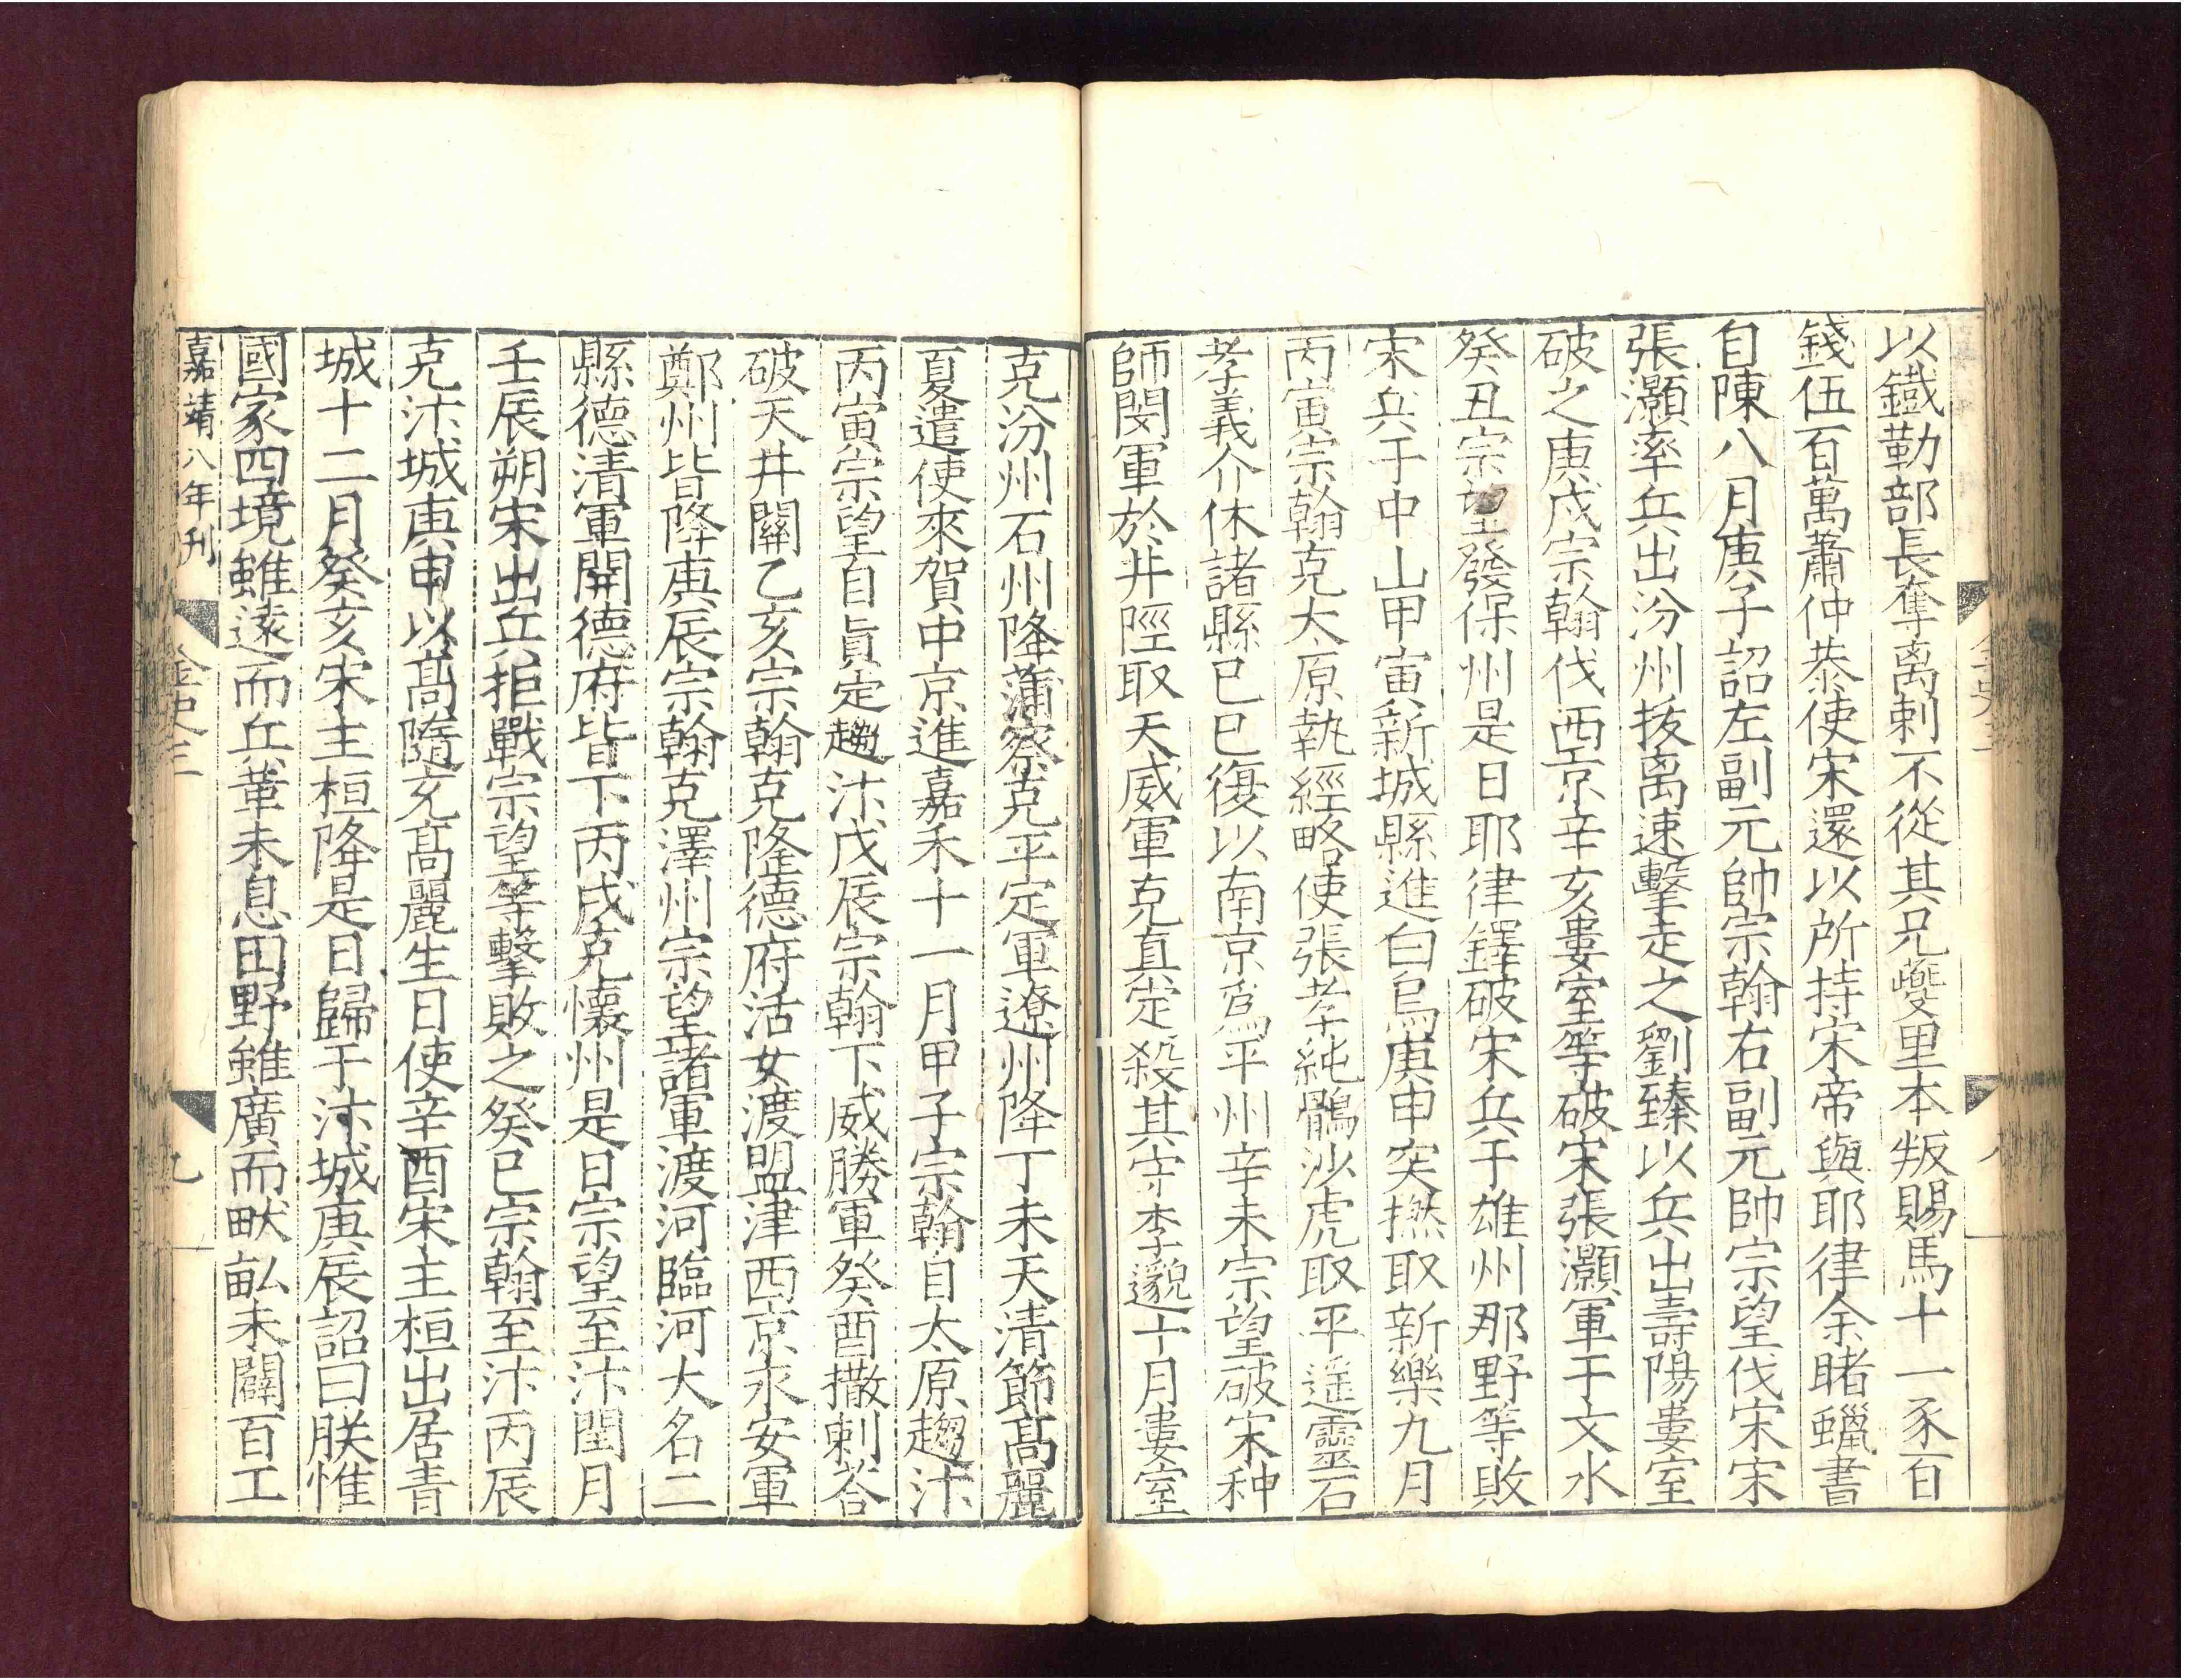 以鐵勒部長奪离剌不從其兄夔里本叛賜馬十一豕百
錢伍百萬蕭仲恭使宋還以所持宋帝與耶律余睹蠟書
自陳八月庚子詔左副元帥宗翰右副元帥宗望伐宋宋
張灝率兵出汾州拔离速擊走之劉臻以兵出壽陽婁室
破之庚戌宗翰伐西京辛亥婁室等破宋張灝軍于文水
癸丑宗望發保州是日耶律鐸破宋兵于雄州那野等敗
宋兵于中山甲寅新城縣進白烏庚申突撚取新樂九月
丙寅宗翰克太原執經略使張孝純鶻沙虎取平遥靈石
孝義介休諸縣己巳復以南京爲平州辛未宗望破宋种
師閔軍於井陘取天威軍克真定殺其守李邈十月婁室
克汾州石州降蒲察克平定軍遼州降丁未天清節髙麗
夏遣使來賀中京進嘉禾十一月甲子宗翰自太原趨汴
丙寅宗望自眞定趨汴戊辰宗翰下威勝軍癸酉撒剌荅
破天井關乙亥宗翰克隆德府活女渡盟津西京永安軍
鄭州皆降庚辰宗翰克澤州宗望諸軍渡河臨河大名二
縣德清軍開德府皆下丙戌克懷州是日宗望至汴閏月
壬辰朔宋出兵拒戰宗望等擊敗之癸巳宗翰至汴丙辰
克汴城庚申以髙隨充髙麗生日使辛酉宋主桓出居青
城十二月癸亥宋主桓降是日歸于汴城庚辰詔曰朕惟
國家四境雖遠而兵革未息田野雖廣而畎畝未闢百工
嘉靖八年刊
金史三
九